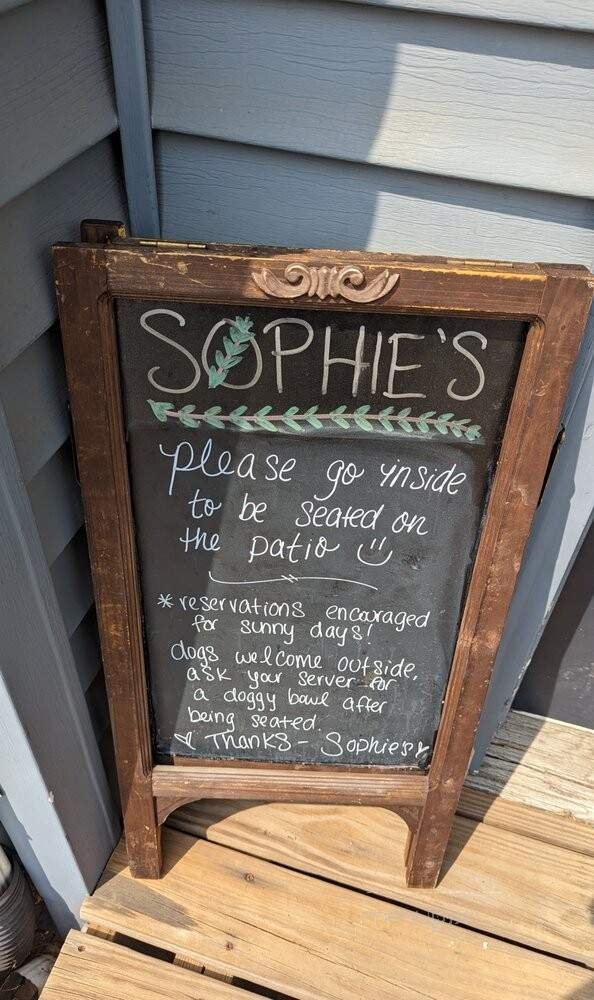 SOPHIE'S
please go inside
to be seated on
the patio
* reservations encouraged
for sunny days!
dogs welcome outside,
ask your server for
a doggy bowl after
being seated.
♡ Thanks - Sophie's ♡